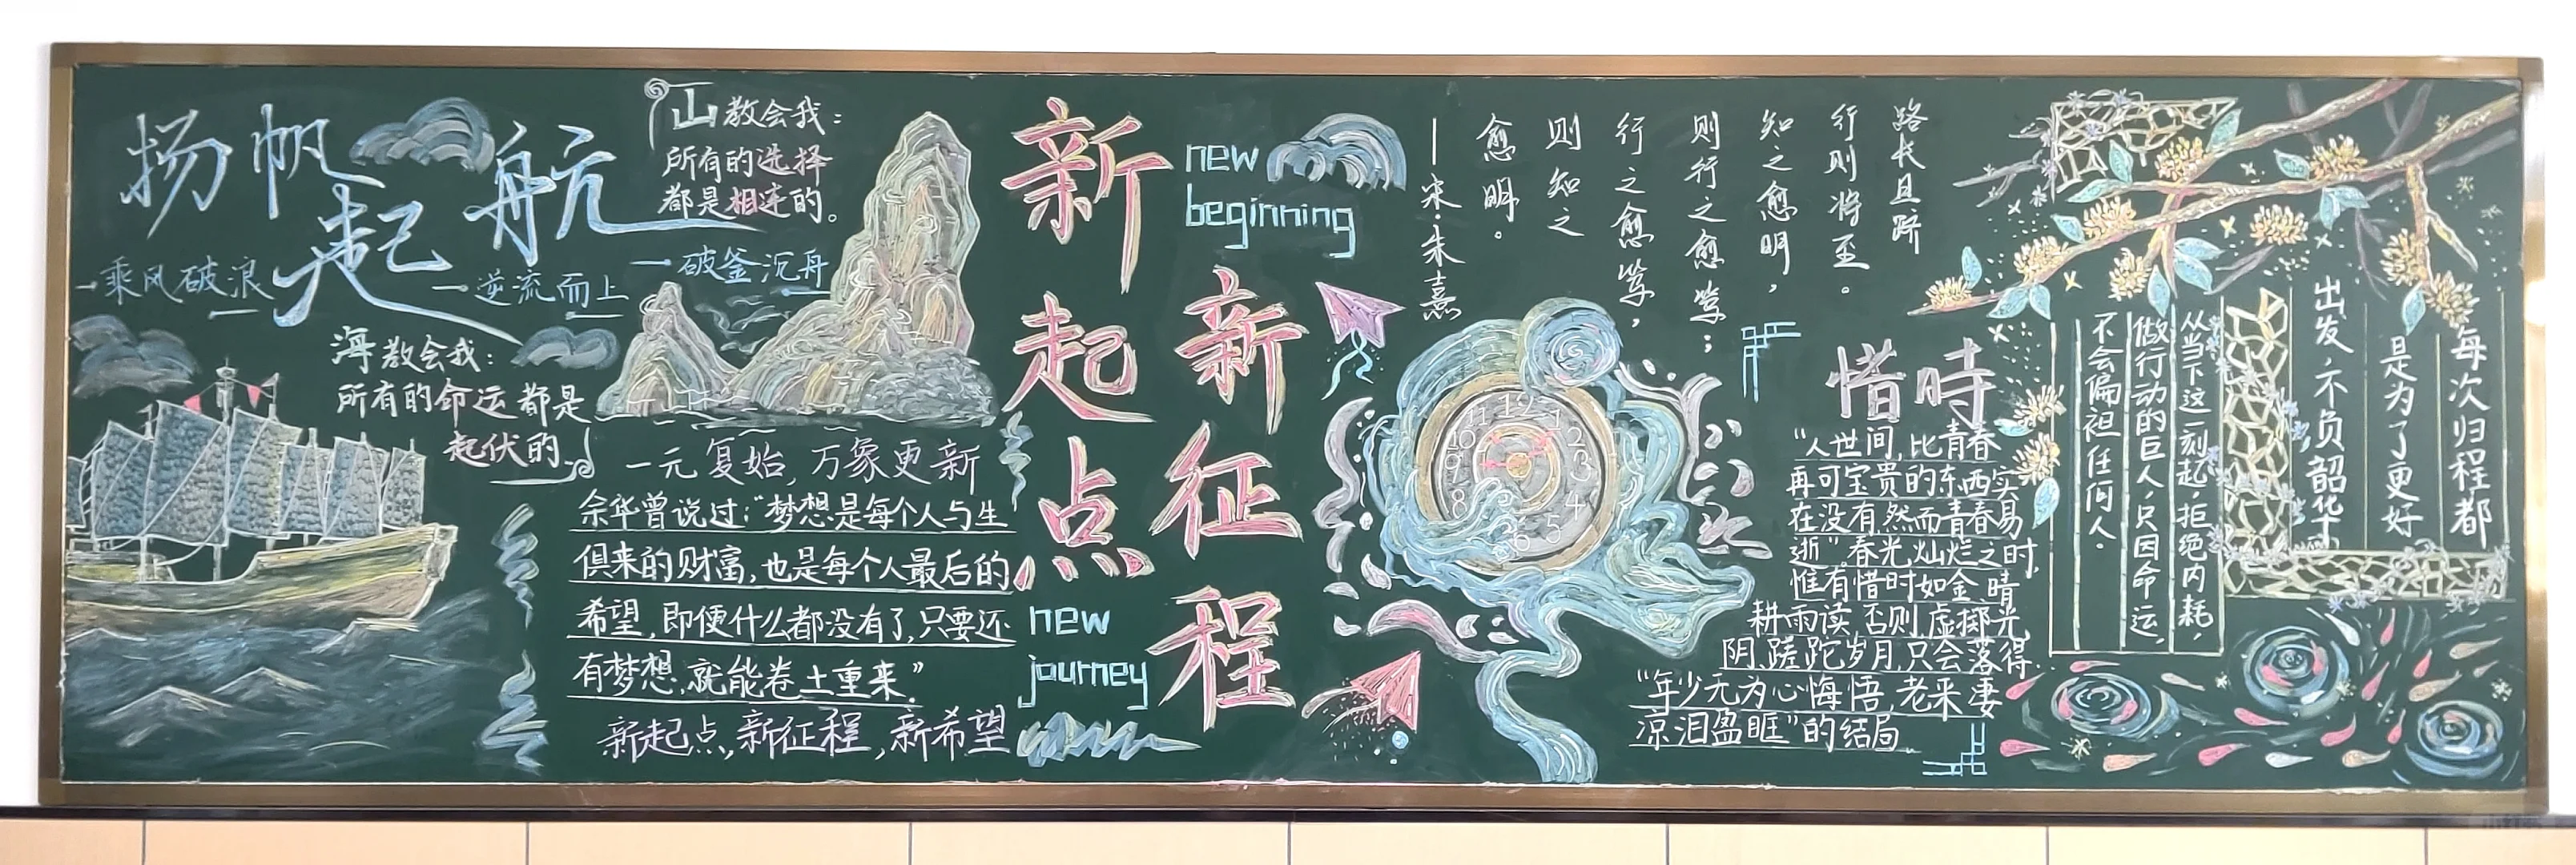 扬帆起航
乘风破浪
逆流而上
破釜沉舟
山教会我：
所有的选择
都是相连的。
海教会我：
所有的命运都是
起伏的。
一元复始，万象更新
余华曾说过：“梦想是每个人与生
俱来的财富，也是每个人最后的
希望，即便什么都没有了，只要还
有梦想，就能卷土重来。”
新起点，新征程，新希望
新起点
新征程
new
beginning
new
journey
路长且跻
行则将至。
知之愈明，
则行之愈笃；
行之愈笃，
则知之
愈明。
—宋·朱熹
12
1
2
3
4
5
6
8
9
10
11
惜时
“人世间，比青春
再可宝贵的东西实
在没有，然而青春易
逝”春光灿烂之时，
惟有惜时如金，晴
耕雨读，否则，虚掷光
阴、蹉跎岁月，只会落得
“年少无为心悔悟，老来凄
凉泪盈眶”的结局
每次归程都
是为了更好
出发，不负韶华
从当下这一刻起，拒绝内耗，
做行动的巨人，只因命运，
不会偏袒任何人。